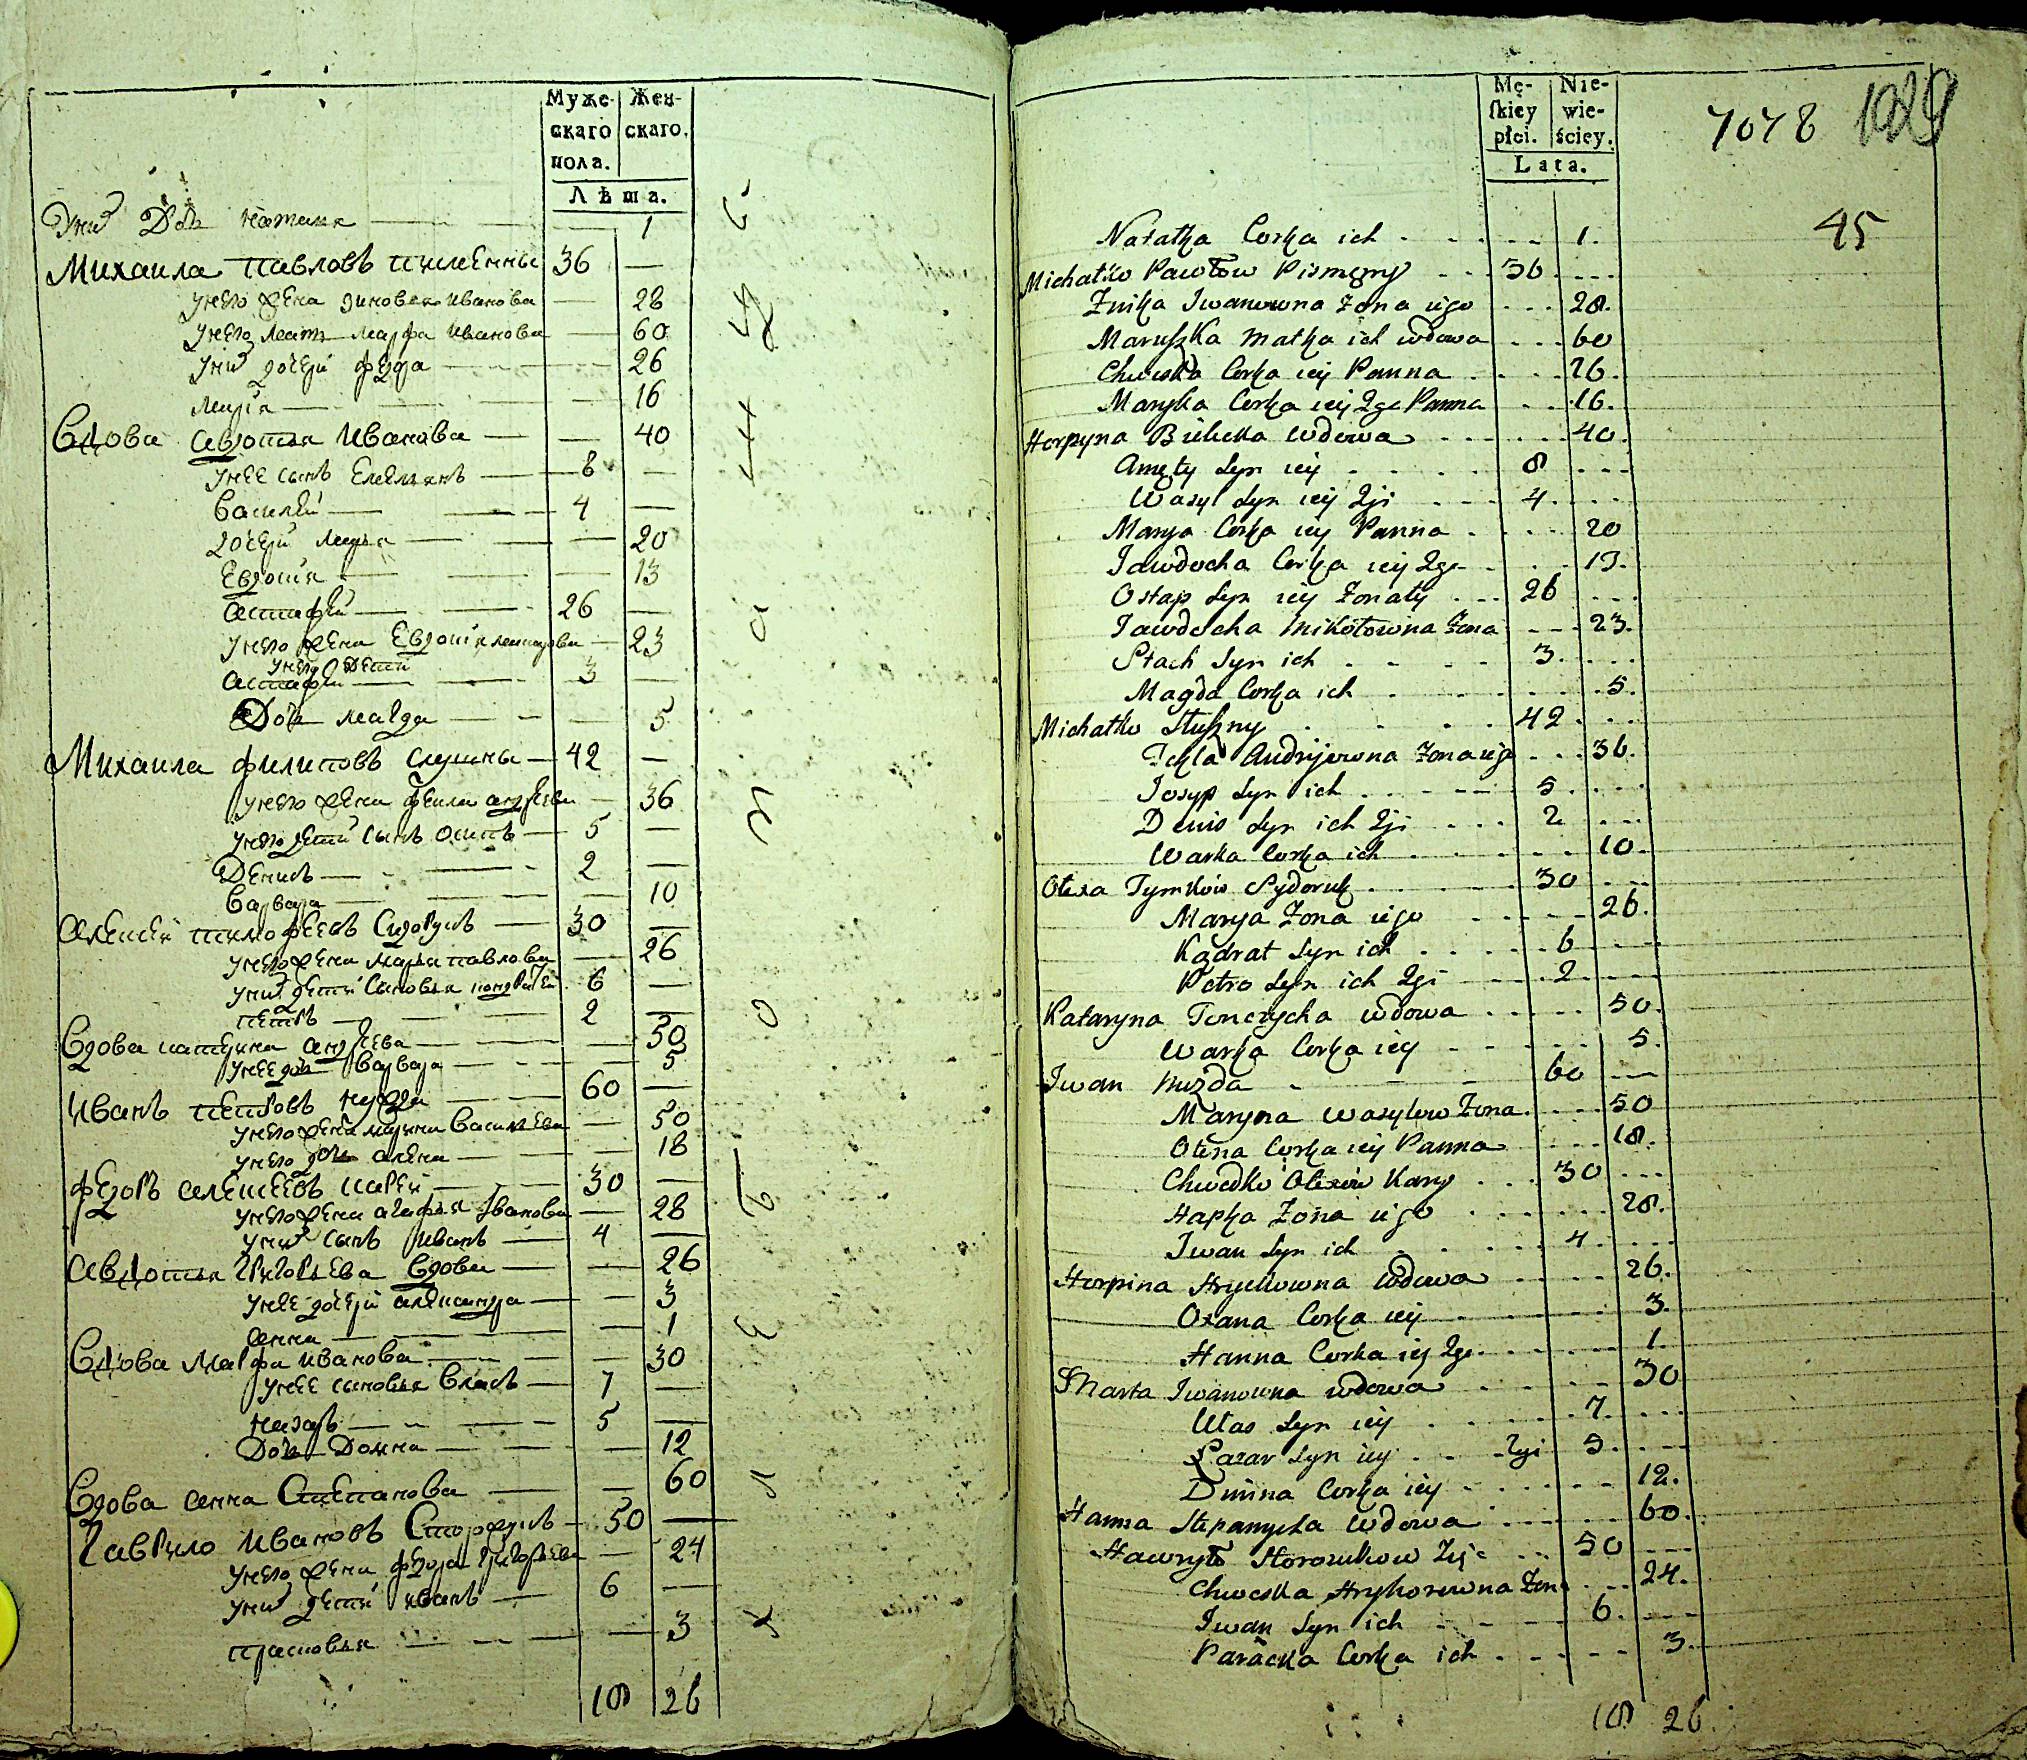 Муже-
скаго
пола.
Жен-
скаго.
Лѣта.
Униⷯ Дочь Наталия 1
Михаила Павловъ Писменны 36
унего жена Зиновья Иванова 28
унего мать Марфа Иванова 60
униⷯ дочери Федора 26
Марія 16
Вдова Авдотья Иванова 40
унее сынъ 8
Василей 4
дочери Марья 20
Евдокія 13
Астафей 26
унего жена Евдокія 23
унего дети
Астафей 3
Дочь Магда 5
Михаила Филиповъ Слушны 42
унего жена Фекла Андреева 36
унего дети сынъ Осипъ 5
Денисъ 2
Варвара 10
Алексей Тимофеевъ Сидорукъ 30
унего жена Марья Павлова 26
униⷯ дети сыновья Кондратей 6
Петръ 2
Вдова Катерина Андреева 50
унее дочь Варвара 5
Иванъ Петровъ Нужда 60
унего жена Марина Васильева 50
унего дочь Алена 18
Федоръ Алексеевъ Карей 30
унего жена Агафья Иванова 28
униⷯ сынъ Иванъ 4
Авдотья Григорьева Вдова 26
унее дочери Александра 3
Анна 1
Вдова Марфа Иванова 30
унее сыновья Власъ 7
Назаръ 5
Дочь Домна 12
Вдова Анна Степанова 60
Гаврило Ивановъ Сторожукъ 50
унего жена Федора Григорьева 24
униⷯ дети Иванъ 6
Прасковья 3
18 26
Mę-
skiey
płci.
Nie-
wie-
ściey.
Lata.
7078
1029
45
Natałka Corka ich 1.
Michałko Pawłow Pismęny 36
Zińka Iwanowna Zona iego 28.
Maruszka matka ich wdowa 60
Chweska Corka iey Panna 26.
Maryka Corka iey 2ga Panna 16.
Horpyna Bielecka wdowa 40.
Syn iey 8
Wasyl Syn iey 2gi 4
Marya Corka iey Panna 20
Jawdocha Corka iey 2ga 13.
Ostap Syn iey Zonaty 26
Jawdocha Mikołowna Zona 23.
Stach Syn ich 3.
Magda Corka ich 5.
Michałko Słuszny 42
Tekla Andrijowna Zona iego 36.
Josyp Syn ich 5
Denis Syn ich 2gi 2
Warka Corka ich 10.
Olexa Tymków Sydoruk 30
Marya Zona iego 26.
Kądrat Syn ich 6
Petro Syn ich 2gi 2
Kataryna Tonczycha wdowa 50.
Warka Corka iey 5.
Iwan Nużda 60
Maryna Wasylow Zona 50
Olena Corka iey Panna 18.
Chwedko Olexiów Kary 30
Hapka Zona iego 28.
Iwan Syn ich 4
Horpina Hryckowna Wdowa 26.
Oxana Corka iey 3.
Hanna Corka iey 2ga 1.
Marta Iwanowna wdowa 30
Ułas Syn iey 7.
Łazar Syn iey 2gi 5.
Dmina Corka iey 12.
Hanna Stepanycha Wdowa 60.
Hawryło Storozukow 50
Chweska Hryhorowna Zona 24.
Iwan Syn ich 6.
Paraska Corka ich 3.
18 26.